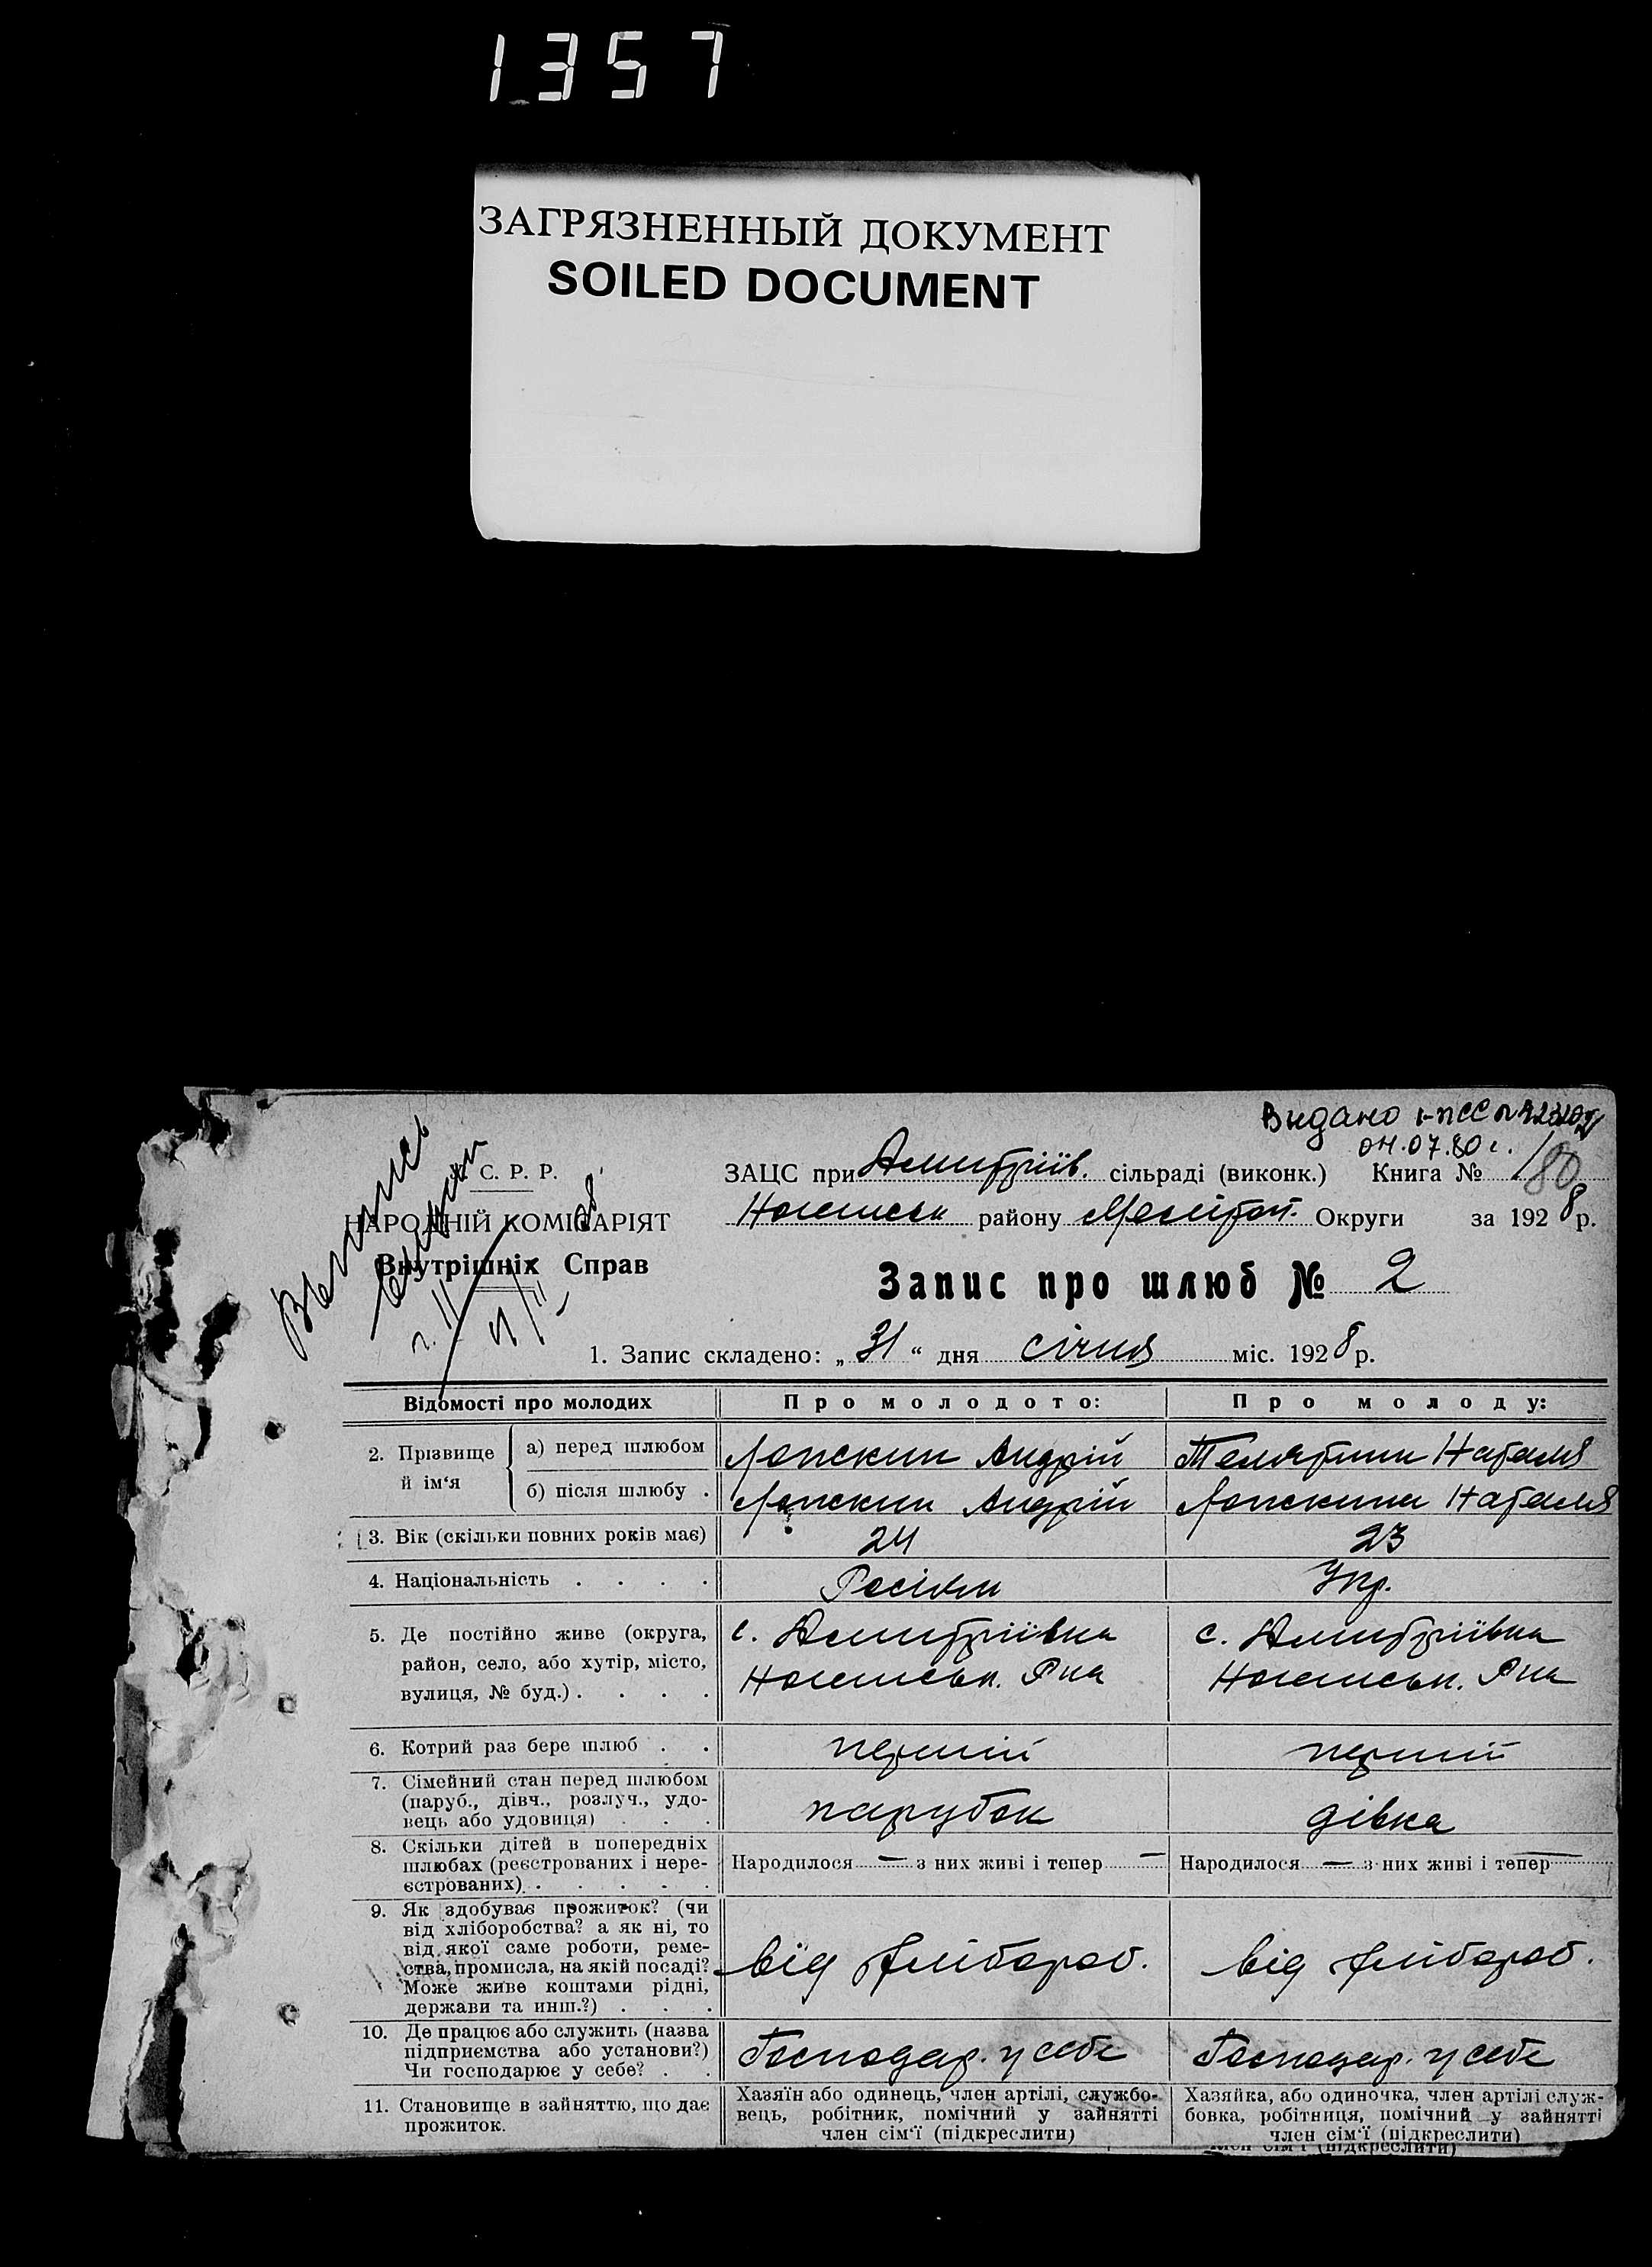 1357
ЗАГРЯЗНЕННЫЙ ДОКУМЕНТ
SOILED DOCUMENT
Видано
04.07.80 г.
С. Р. Р.
НАРОДНІЙ КОМІСАРІЯТ
Внутрішніх Справ
ЗАЦС при Дмитріїв. сільраді (виконк.) Книга № 180
району Мелітоп. Округи за 1928 р.
Запис про шлюб № 2
1. Запис складено: „31“ дня січня міс. 1928 р.
Відомості про молодих Про молодого: Про молоду:
2. Прізвище й ім‘я
а) перед шлюбом Лопскин Андрій Телятник Наталія
б) після шлюбу . Лопскин Андрій Лопскина Наталія
3. Вік (скільки повних років має) 24 23
4. Національність . . . . Росіян Укр.
5. Де постійно живе (округа, с. Дмитріївка с. Дмитріївка
район, село, або хутір, місто, Р-на Р-на
вулиця, № буд.) . . . .
6. Котрий раз бере шлюб . . перший перший
7. Сімейний стан перед шлюбом
(паруб., дівч., розлуч., удо- парубок дівка
вець або удовиця) . . .
8. Скільки дітей в попередніх
шлюбах (реєстрованих і нере- Народилося — з них живі і тепер — Народилося — з них живі і тепер —
єстрованих) . . . . .
9. Як здобуває прожиток? (чи
від хліборобства? а як ні, то
від якої саме роботи, реме-
ства, промисла, на якій посаді? від хлібороб. від хлібороб.
Може живе коштами рідні,
держави та инш.?) . . .
10. Де працює або служить (назва
підприємства або установи?) Господар. у себе Господар. у себе
Чи господарює у себе? . .
11. Становище в зайняттю, що дає
прожиток.
Хазяїн або одинець, член артілі, службо-
вець, робітник, помічний у зайнятті
член сім‘ї (підкреслити)
Хазяйка, або одиночка, член артілі служ-
бовка, робітниця, помічний у зайнятті
член сім‘ї (підкреслити)